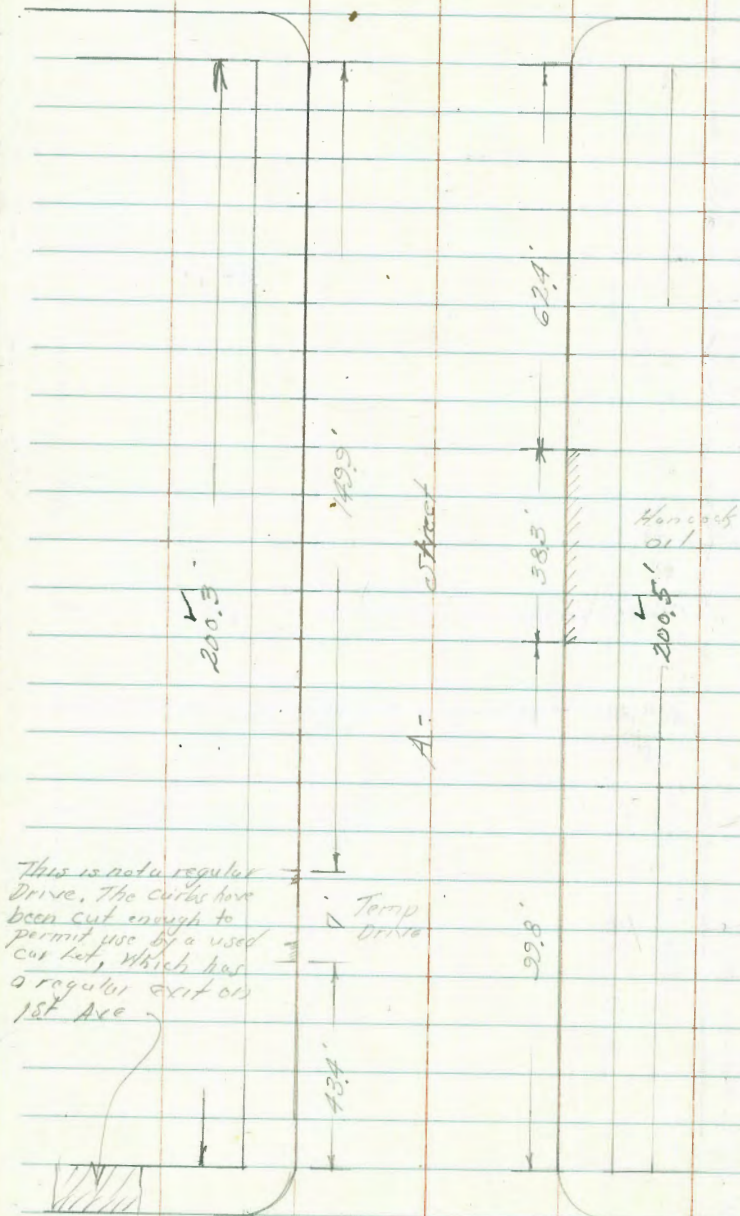 62.4'
149.9'
Street
38.3'
Hancock
oil
200.3'
200.5'
A -
This is not a regular
Drive. The curbs have
been cut enough to
permit use by a used
car lot, which has
a regular exit on
1st Ave
7'
Temp
Drive
99.8'
43.4'